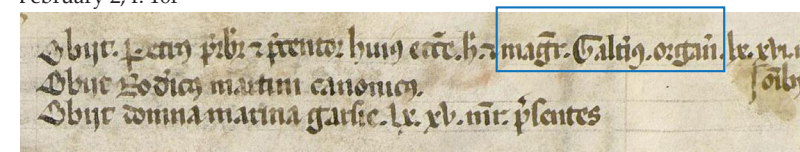 February 2, f. 16r
Obijt. Petrus p̃rbr ⁊ p̃centor huiꝯ ecc̃e. h̃. ⁊ mag̃r. Galt̃iꝯ. organ̄. lx. xvi. m
Obijt Rod̃icꝯ martini canonicꝯ. oĩb
Obijt domna marina garsie. lx. xv. mr̃. p̃sentes